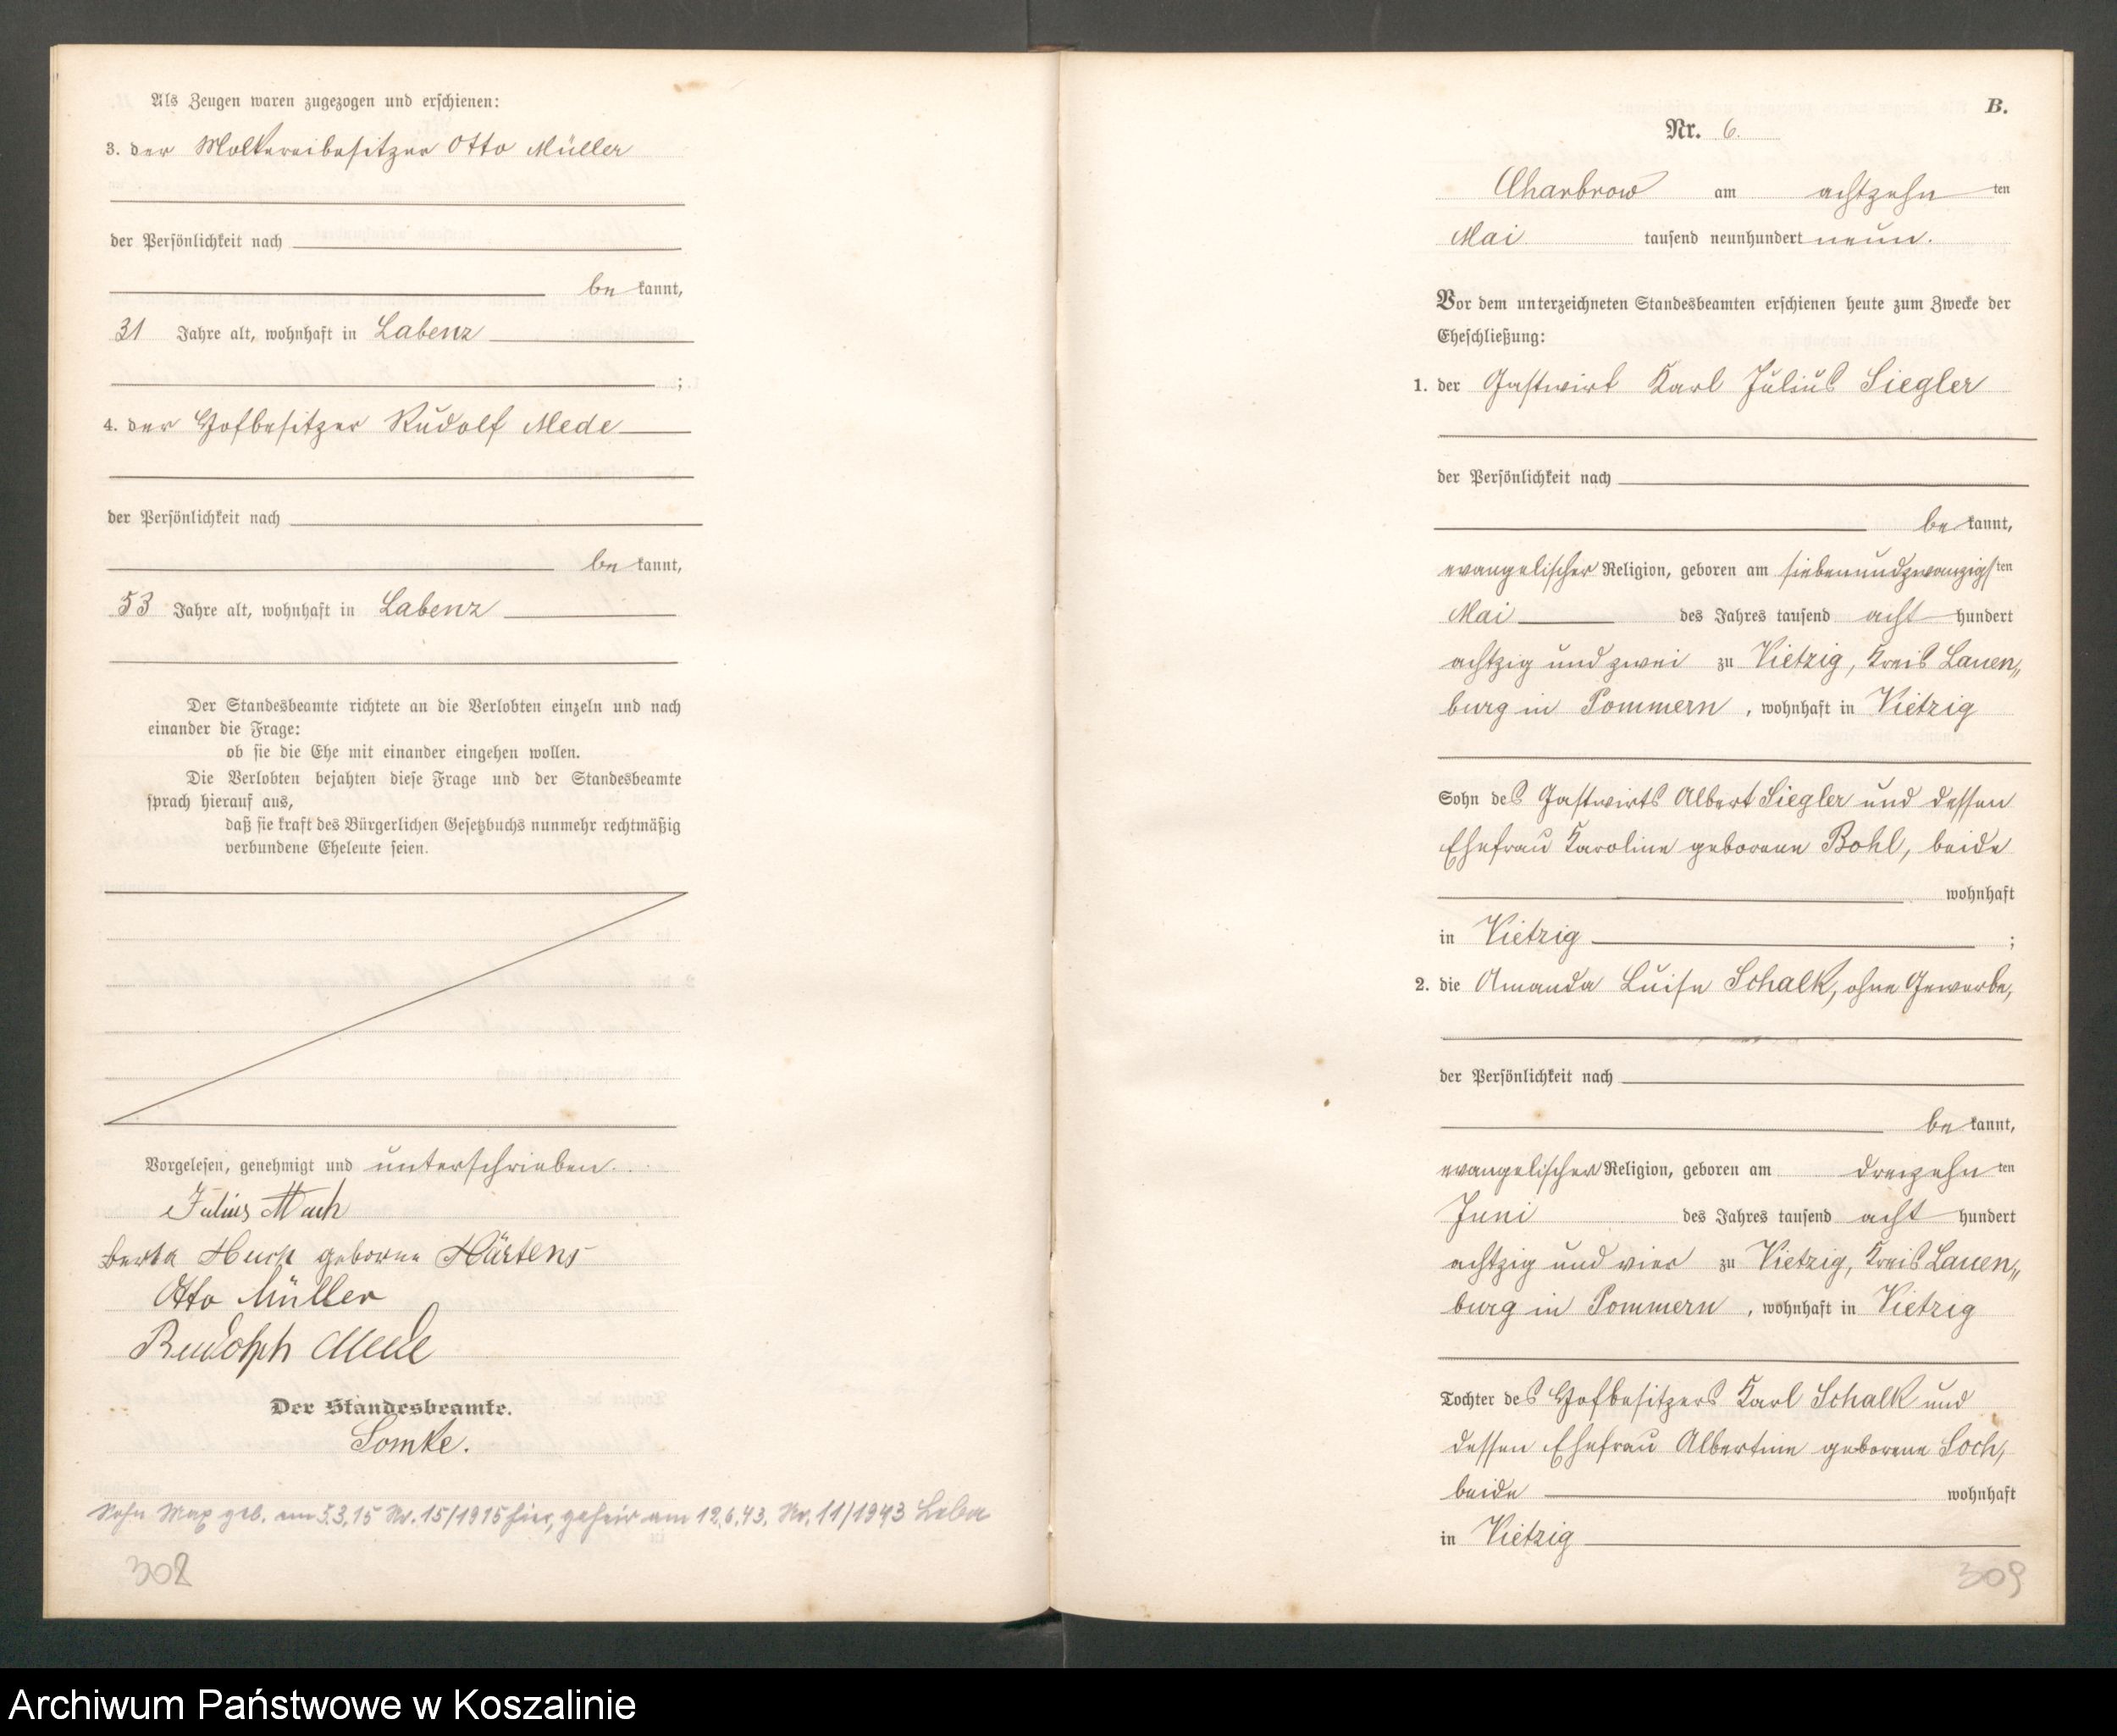 Als Zeugen waren zugezogen und erschienen:
3. der Molkereibesitzer Otto Müller
der Persönlichkeit nach
be kannt,
31 Jahre alt, wohnhaft in Labenz
;
4. der Hofbesitzer Rudolf Mede
der Persönlichkeit nach
be kannt,
53 Jahre alt, wohnhaft in Labenz
Der Standesbeamte richtete an die Verlobten einzeln und nach
einander die Frage:
ob sie die Ehe mit einander eingehen wollen.
Die Verlobten bejahten diese Frage und der Standesbeamte
sprach hierauf aus,
daß sie kraft des Bürgerlichen Gesetzbuchs nunmehr rechtmäßig
verbundene Eheleute seien.
Vorgelesen, genehmigt und unterschrieben.
Julius
geborne
Otto Müller
Rudolph Mede
Der Standesbeamte.
Lomke.
Sohn Max geb. am 5.3.15 Nr. 15/1915 hier, geheir am 12.6.43. Nr. 11/1943 Leba
308
B.
Nr. 6.
Charbrow am achtzehn ten
Mai tausend neunhundert neun.
Vor dem unterzeichneten Standesbeamten erschienen heute zum Zwecke der
Eheschließung:
1. der Gastwirt Karl Julius Siegler
der Persönlichkeit nach
be kannt,
evangelischer Religion, geboren am siebenundzwanzigsten
Mai des Jahres tausend acht hundert
achtzig und zwei zu Vietzig, Kreis Lauen„
burg in Pommern, wohnhaft in Vietzig
Sohn des Gastwirts Albert Siegler und dessen
Ehefrau Karoline geborene Bohl, beide
wohnhaft
in Vietzig ;
2. die Amanda Luise Schalk, ohne Gewerbe,
der Persönlichkeit nach
be kannt,
evangelischer Religion, geboren am dreizehn ten
Juni des Jahres tausend acht hundert
achtzig und vier zu Vietzig, Kreis Lauen„
burg in Pommern, wohnhaft in Vietzig
Tochter des Hofbesitzers Karl Schalk und
dessen Ehefrau Albertine geborene Loch,
beide wohnhaft
in Vietzig
309
Archiwum Państwowe w Koszalinie